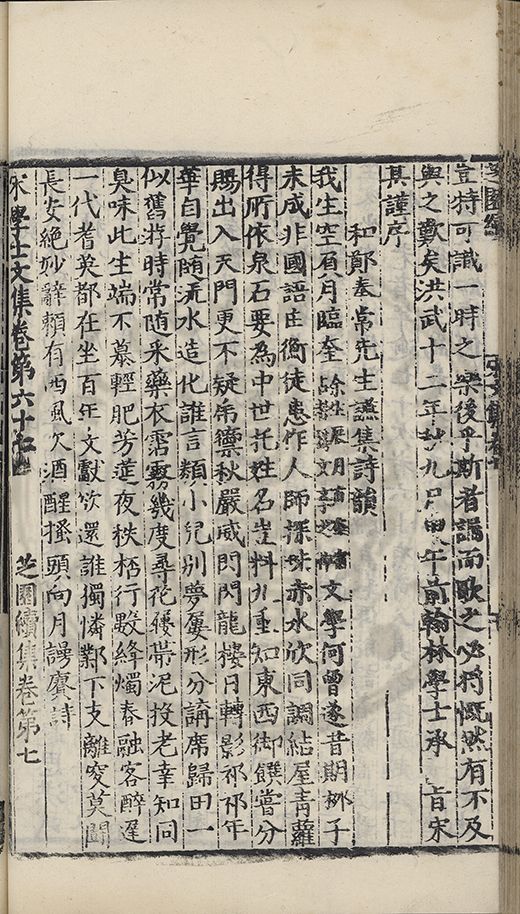 豈特可識一時之樂後乎斯者誦而歌之必將慨然有不及
與之歎矣洪武十二年秋九月甲午前翰林學士承 旨宋
其謹序
和鄭奉常先生讌集詩韻
我生空有月臨奎 文學何曾遂昔期柳子
未成非國語匡衡徒患作人師探珠赤水欣同調結屋青蘿
得所依泉石要為中世托姓名豈料九重知東西御饌嘗分
賜出入天門更不疑虎衛秋嚴威閃閃龍樓日轉影祁祁年
華自覺隨流水造化誰言類小兒別夢屢形分講席歸田一
似舊游時常隨采藥衣霑霧幾度尋花屨帶泥投老幸知同
臭味此生端不慕輕肥芳筵夜秩梧行斝絳燭春融客醉遲
一代耆英都在坐百年文獻欲還誰獨憐鄴下支離叟莫鬭
長安絕妙辭賴有西風欠酒醒搔頭向月謾賡詩
宋學士文集卷第六十 芝園續集卷第七